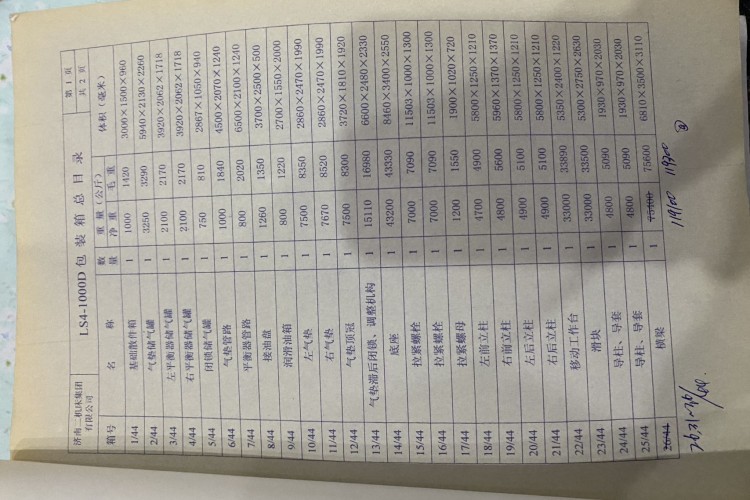 济南二机床集团有限公司 LS4-1000D 包装箱总目录 第 1 页 共 2 页
箱号 名 称 数量 重量(公斤) 净重 毛重 体积(毫米)
1/44 基础散件箱 1 1000 1420 3000×1500×960
2/44 气垫储气罐 1 3250 3290 5940×2130×2260
3/44 左平衡器储气罐 1 2100 2170 3920×2062×1718
4/44 右平衡器储气罐 1 2100 2170 3920×2062×1718
5/44 闭锁储气罐 1 750 810 2867×1050×940
6/44 气垫管路 1 1000 1840 4500×2070×1240
7/44 平衡器管路 1 800 2020 6500×2100×1240
8/44 接油盘 1 1260 1350 3700×2500×500
9/44 润滑油箱 1 800 1220 2700×1550×2000
10/44 左气垫 1 7500 8350 2860×2470×1990
11/44 右气垫 1 7670 8520 2860×2470×1990
12/44 气垫顶冠 1 7500 8300 3720×1810×1920
13/44 气垫滞后闭锁、调整机构 1 15110 16980 6600×2480×2330
14/44 底座 1 43200 43330 8460×3400×2550
15/44 拉紧螺栓 1 7000 7090 11503×1000×1300
16/44 拉紧螺栓 1 7000 7090 11503×1000×1300
17/44 拉紧螺母 1 1200 1550 1900×1020×720
18/44 左前立柱 1 4700 4900 5800×1250×1210
19/44 右前立柱 1 4800 5600 5960×1370×1370
20/44 左后立柱 1 4900 5100 5800×1250×1210
21/44 右后立柱 1 4900 5100 5800×1250×1210
22/44 移动工作台 1 33000 33890 5350×2400×1220
23/44 滑块 1 33000 33500 5300×2750×2630
24/44 导柱、导套 1 4800 5090 1930×970×2030
25/44 导柱、导套 1 4800 5090 1930×970×2030
26/44 横梁 1 75400 75600 6810×3500×3110
119100 119300